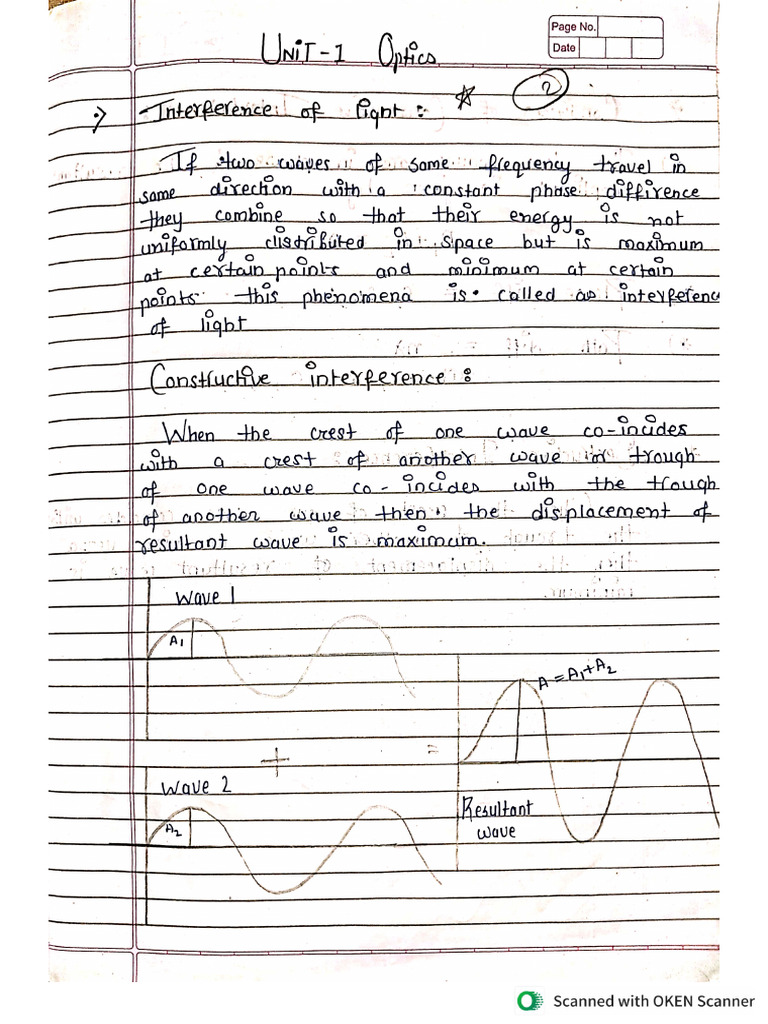 Page No.
Date
UNIT-1 Optics
2
Interference of light :
If two waves of same frequency travel in
same direction with a constant phase diffirence
they combine so that their energy is not
uniformly distributed in space but is maximum
at certain points and minimum at certain
points this phenomena is called as interferenc
of light
Constructive interference :
When the crest of one wave co-incides
with a crest of another wave or trough
of one wave co-incides with the trough
of another wave then the displacement of
resultant wave is maximum.
Wave 1
A1
A = A1+A2
+
=
Wave 2
A2
Resultant
wave
Scanned with OKEN Scanner